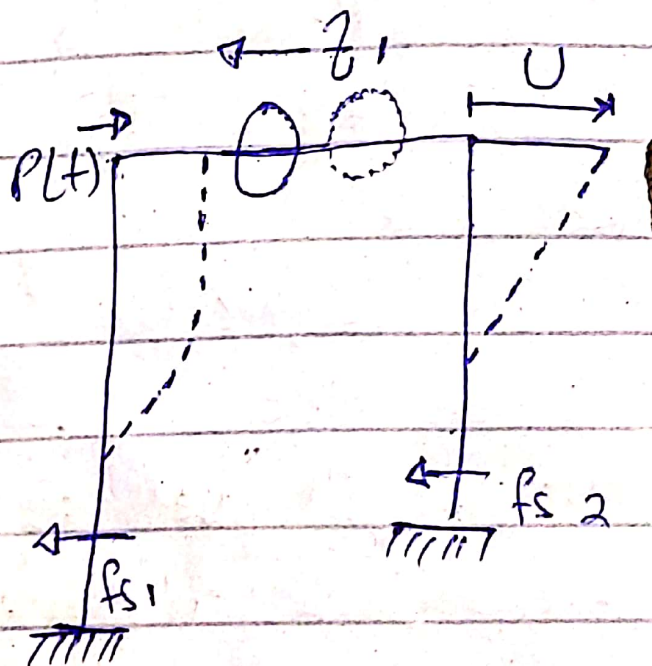 U
P(t)
fs 2
fs1